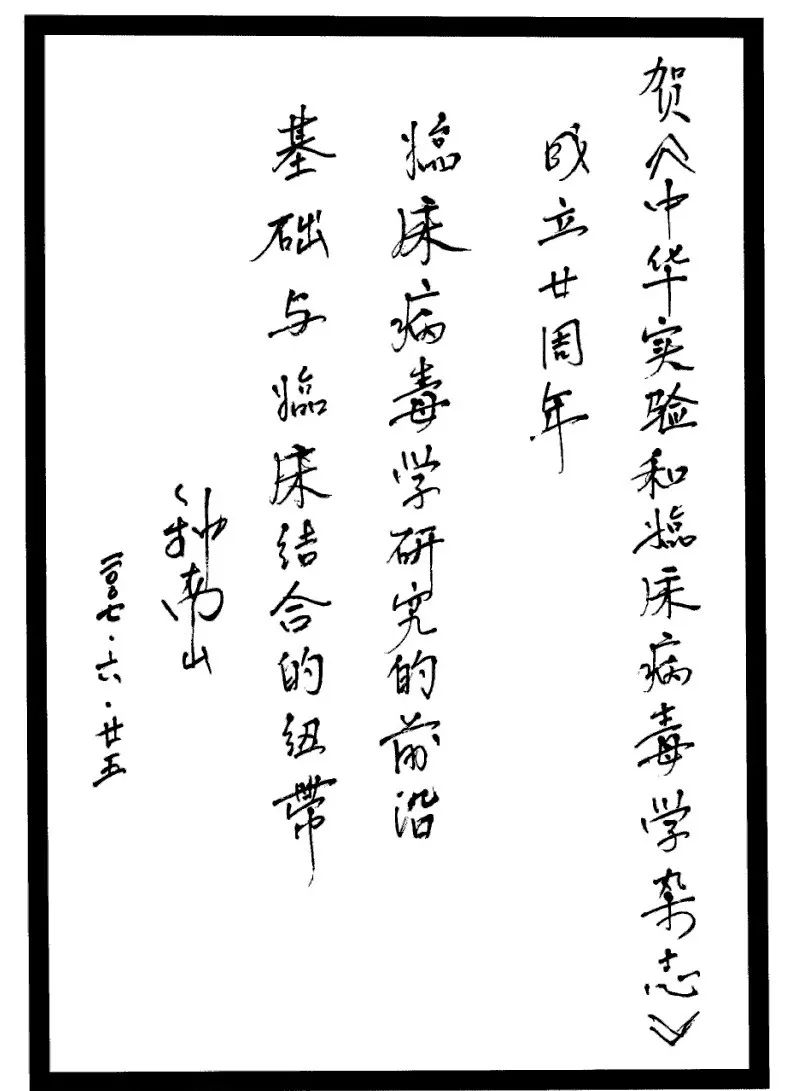 贺《中华实验和临床病毒学杂志》
成立廿周年
临床病毒学研究的前沿
基础与临床结合的纽带
钟南山
二〇〇七·六·廿五